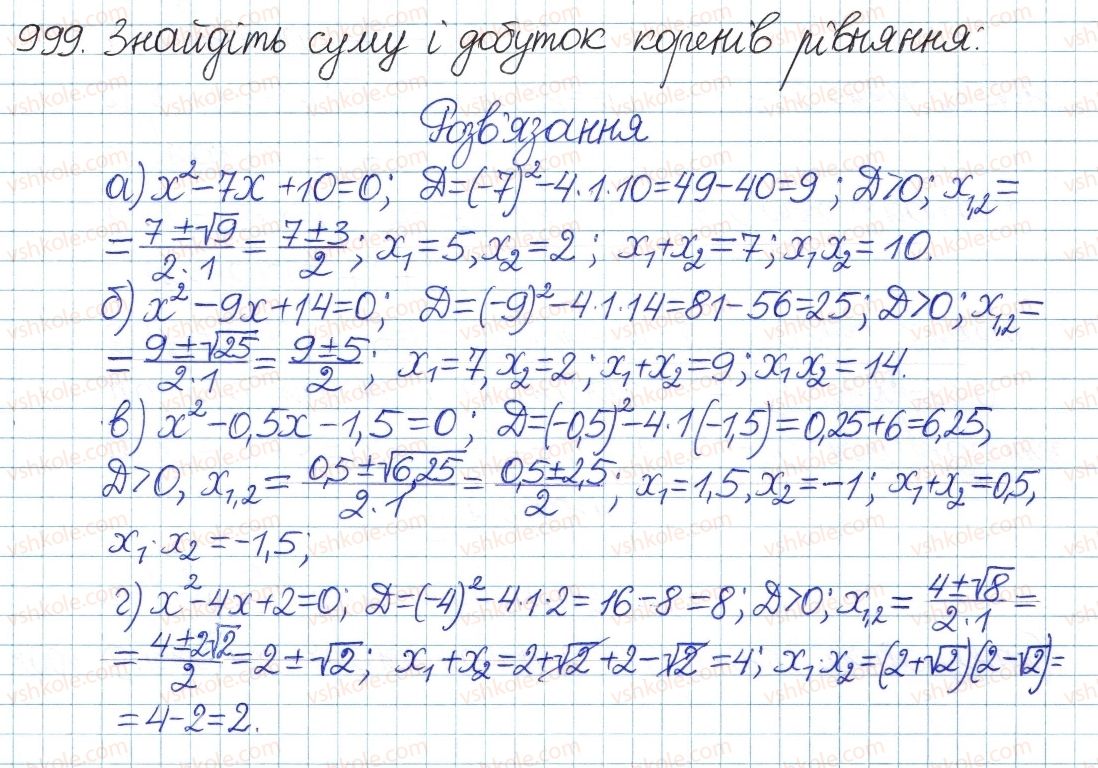 999. Знайдіть суму і добуток коренів рівняння:
Розв'язання
а) x²-7x+10=0; D=(-7)²-4·1·10=49-40=9; D>0; x₁,₂=
=(7±√9)/(2·1)=(7±3)/2; x₁=5, x₂=2; x₁+x₂=7; x₁x₂=10.
б) x²-9x+14=0; D=(-9)²-4·1·14=81-56=25; D>0; x₁,₂=
=(9±√25)/(2·1)=(9±5)/2; x₁=7, x₂=2; x₁+x₂=9; x₁x₂=14.
в) x²-0,5x-1,5=0; D=(-0,5)²-4·1(-1,5)=0,25+6=6,25,
D>0, x₁,₂=(0,5±√6,25)/(2·1)=(0,5±2,5)/2; x₁=1,5, x₂=-1; x₁+x₂=0,5,
x₁·x₂=-1,5;
г) x²-4x+2=0; D=(-4)²-4·1·2=16-8=8; D>0; x₁,₂=(4±√8)/(2·1)=
=(4±2√2)/2=2±√2; x₁+x₂=2+√2+2-√2=4; x₁·x₂=(2+√2)(2-√2)=
=4-2=2.